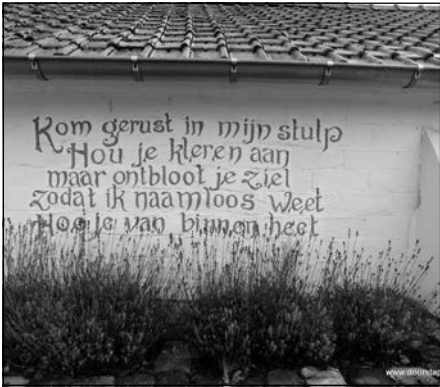 Kom gerust in mijn stulp
Hou je kleren aan
maar ontbloot je ziel
zodat ik naamloos weet
Hoe je van binnen heet